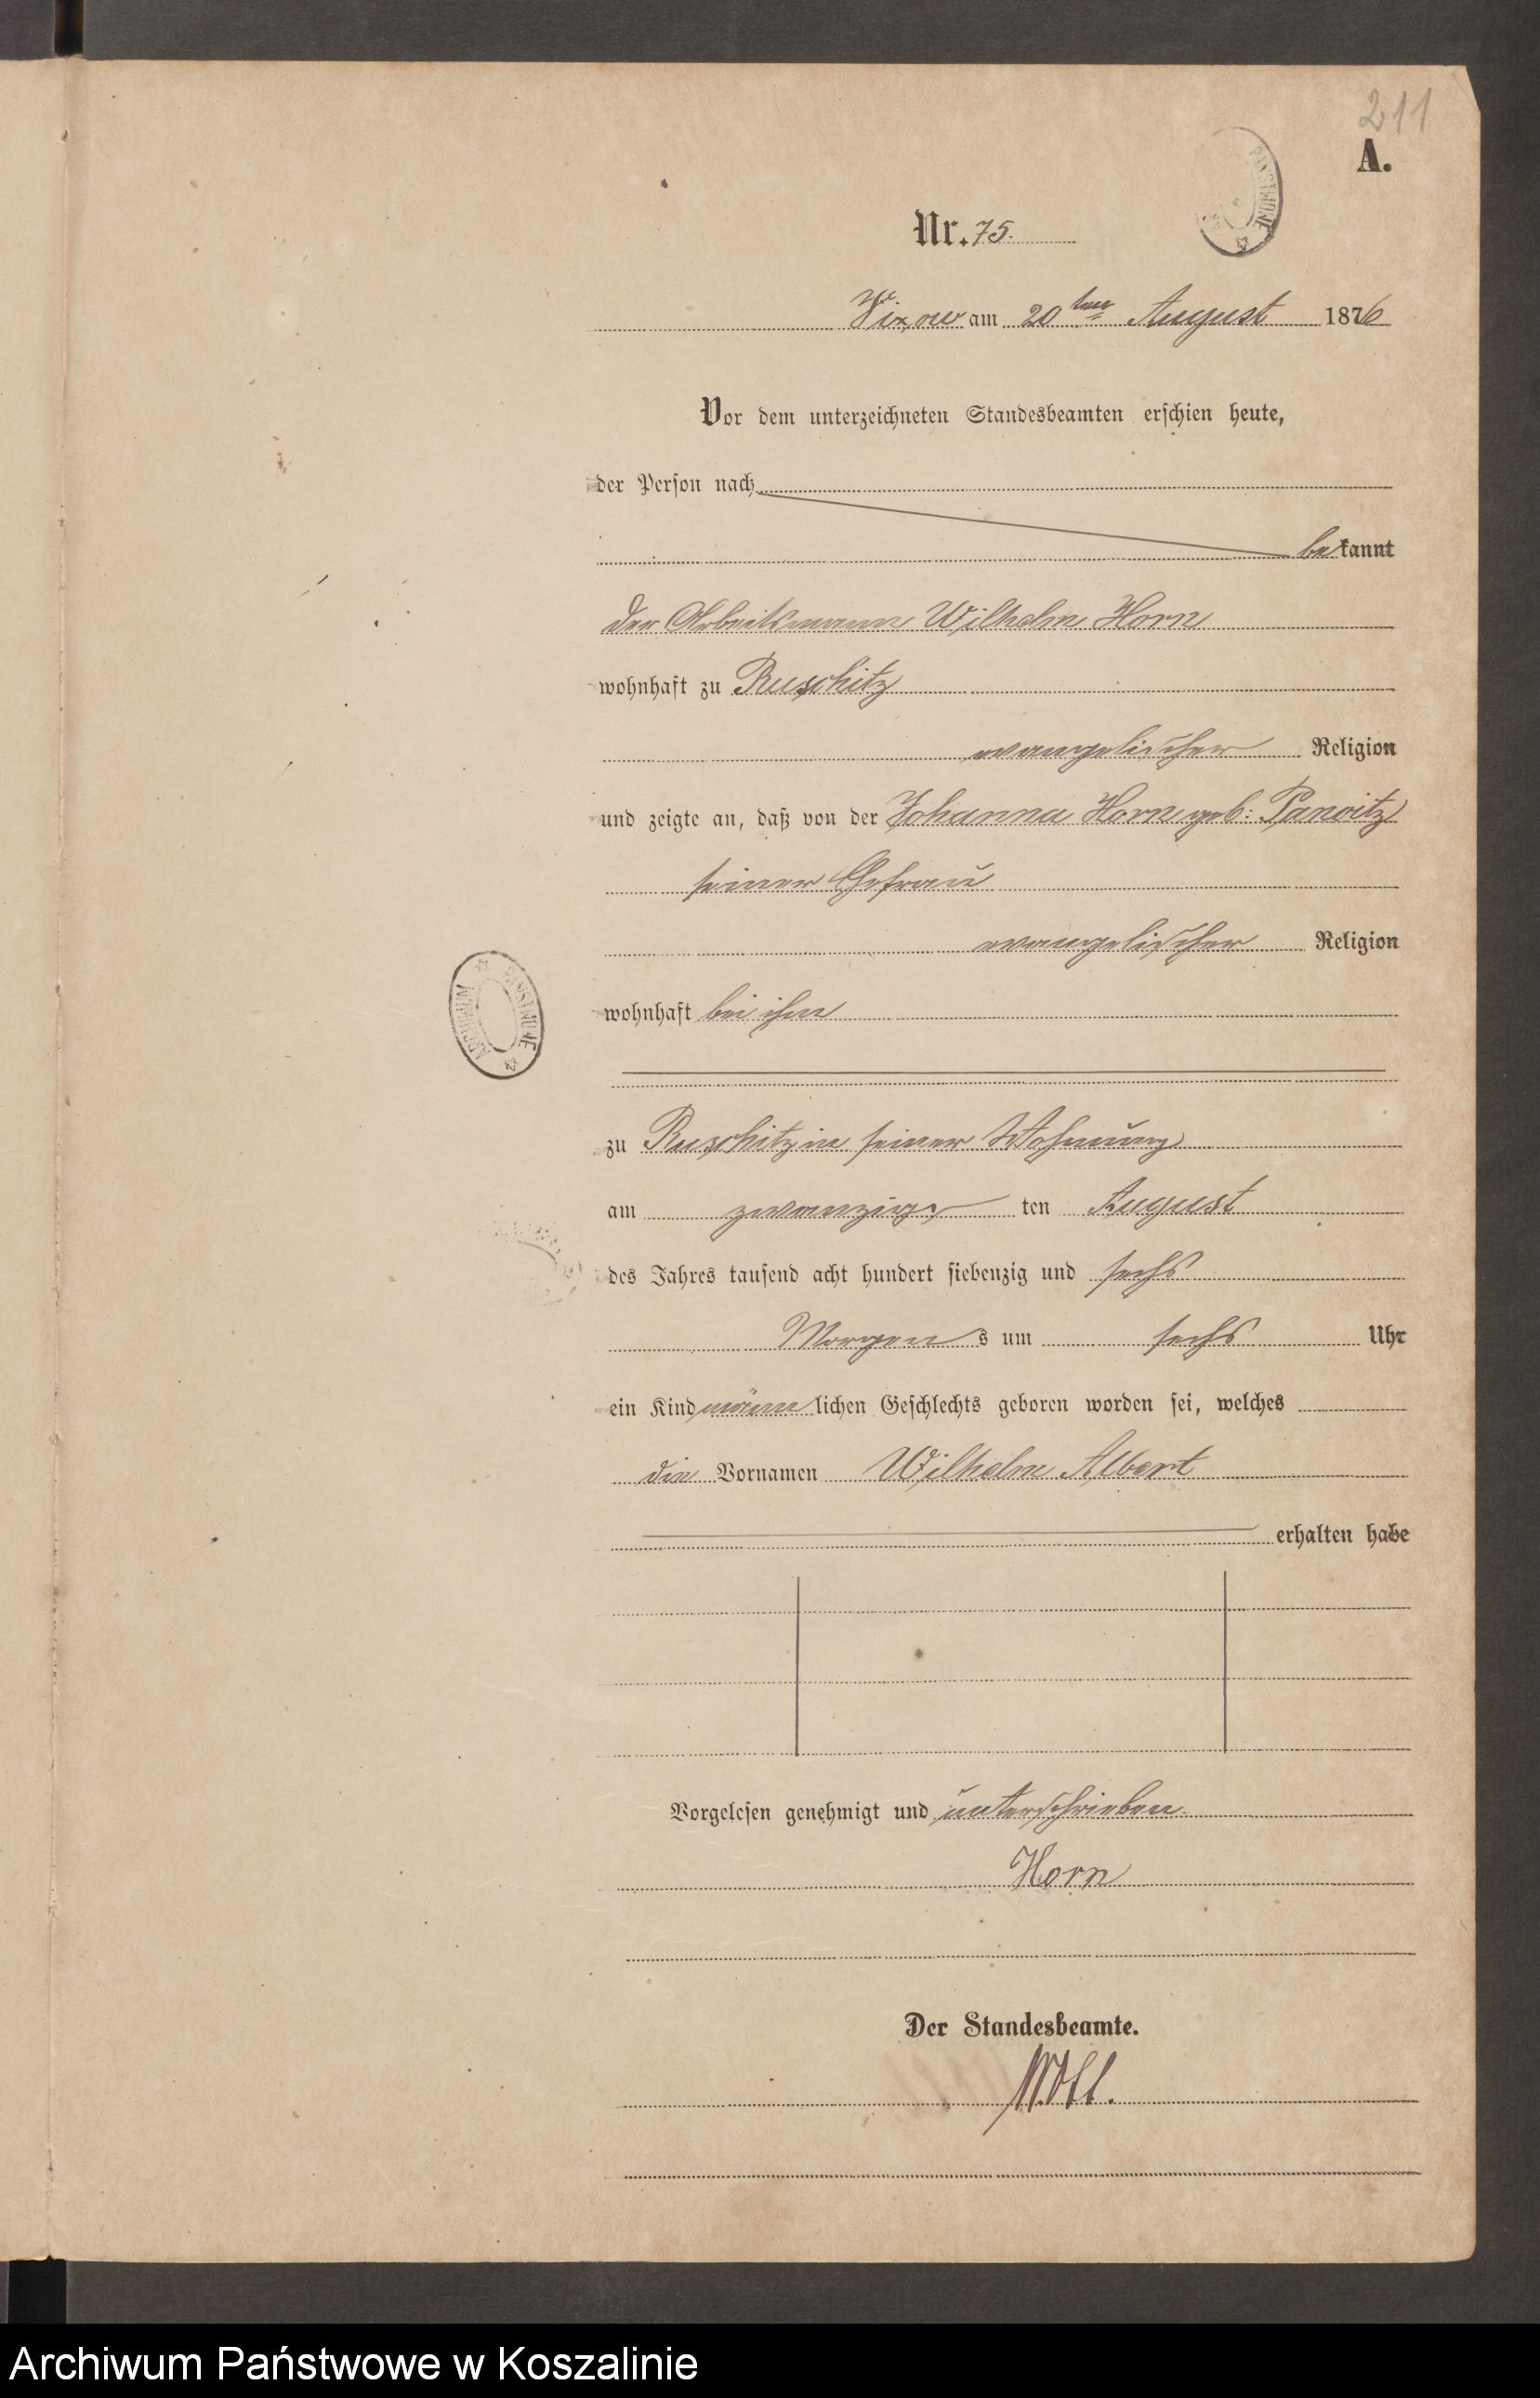 211
A.
Nr. 75.
Vixow am 20ten August 1876
Vor dem unterzeichneten Standesbeamten erschien heute,
der Person nach
bekannt
der Arbeitsmann Wilhelm Horn
wohnhaft zu Ruschitz
evangelischer Religion
und zeigte an, daß von der Johanna Horn geb: Panoitz
seiner Ehefrau
evangelischer Religion
wohnhaft bei ihm
ARCHIWUM PAŃSTWOWE
zu Ruschitz in seiner Wohnung
am zwanzigs ten August
des Jahres tausend acht hundert siebenzig und sechs
Morgens um sechs Uhr
ein Kind männlichen Geschlechts geboren worden sei, welches
die Vornamen Wilhelm Albert
erhalten habe
Vorgelesen genehmigt und unterschrieben.
Horn
Der Standesbeamte.
Archiwum Państwowe w Koszalinie